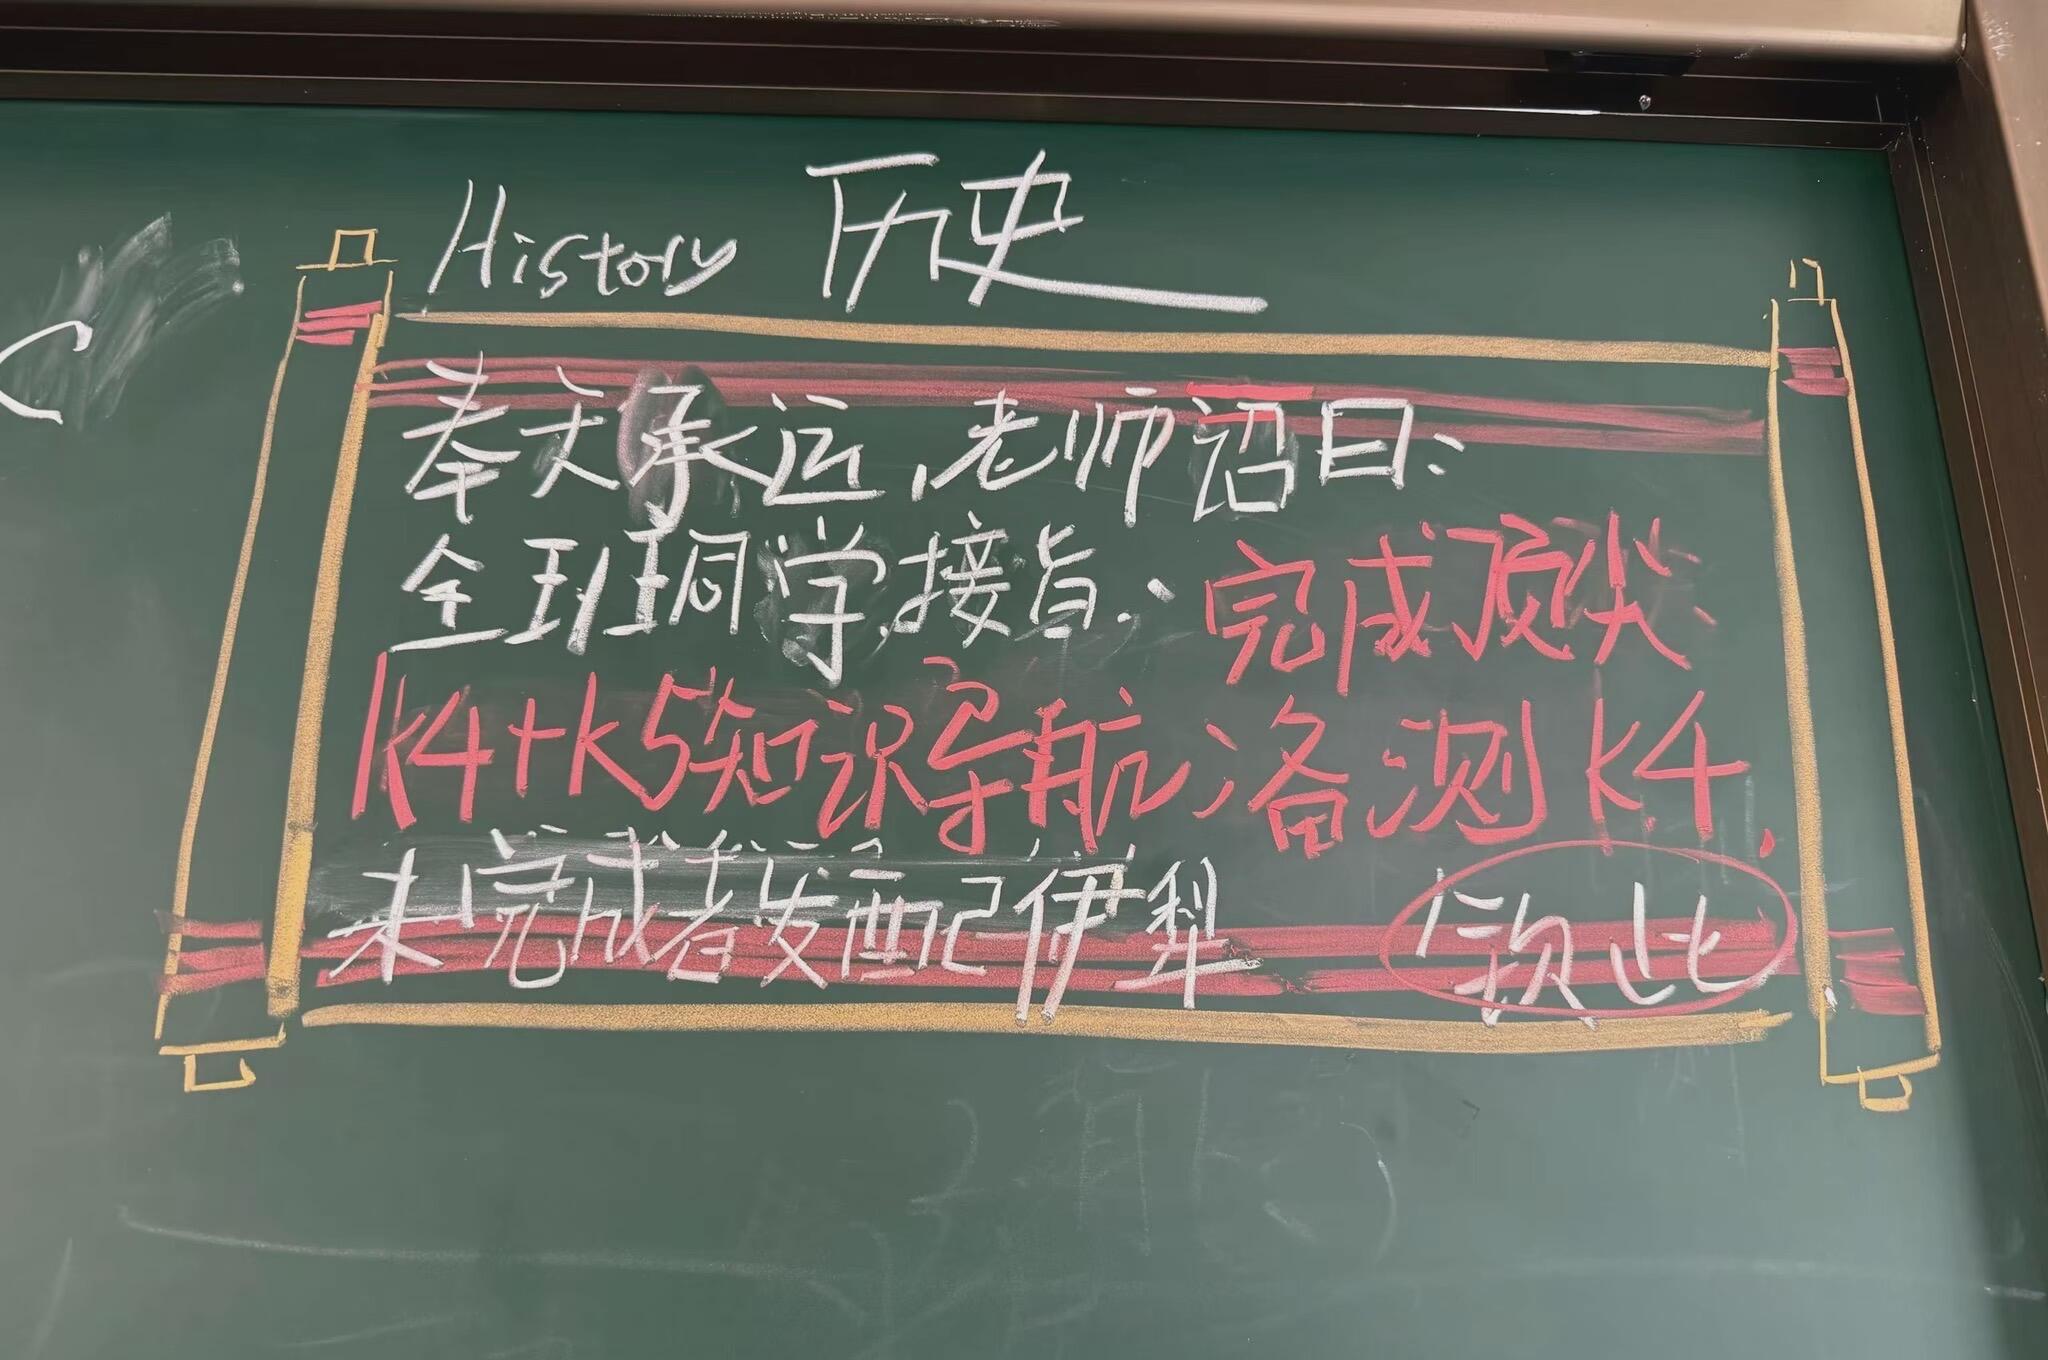 History 历史
奉天承运,老师诏曰:
全班同学接旨:完成顶尖
K4+K5知识导航,备测K4.
未完成者发配伊犁 钦此
C